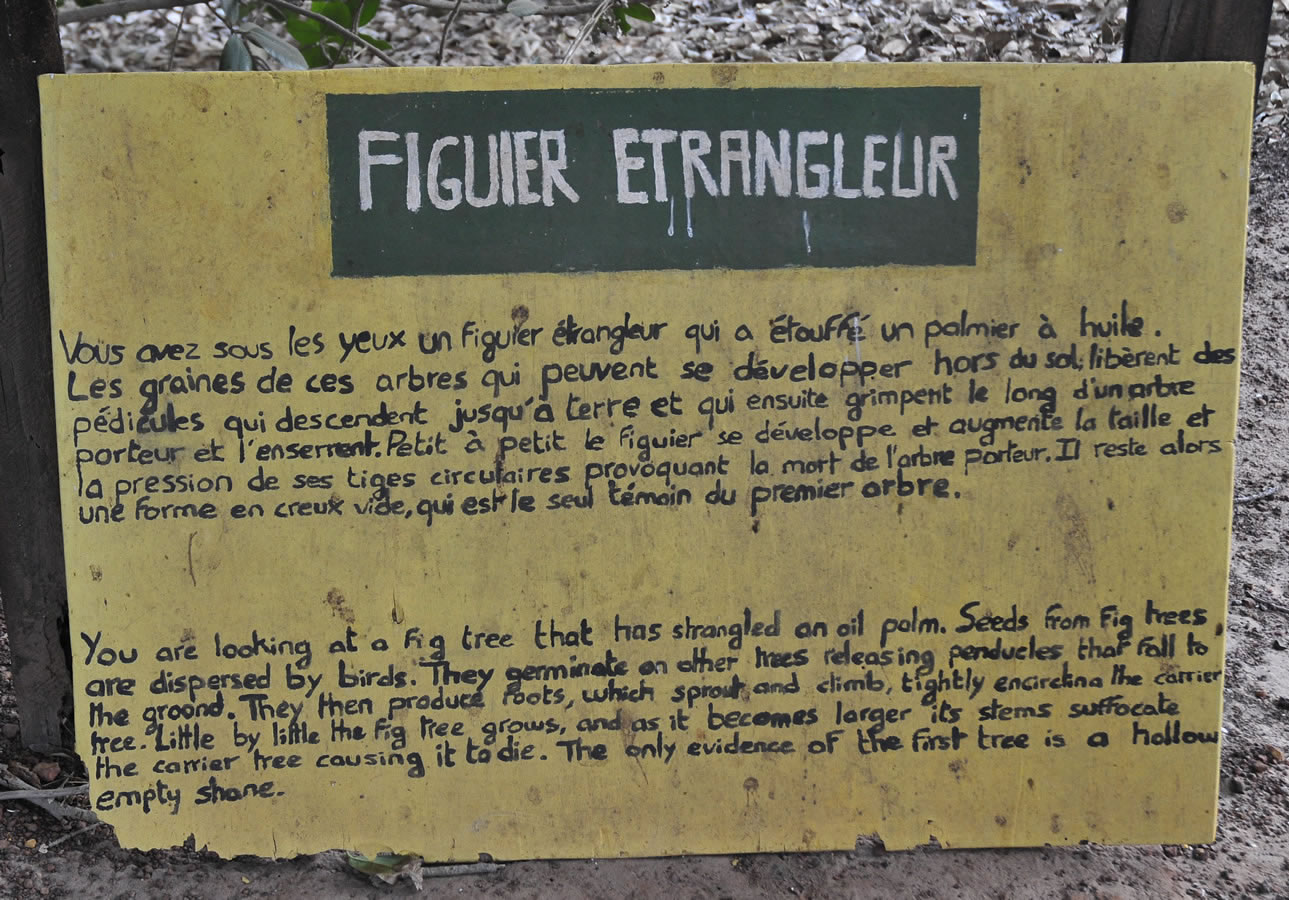 FIGUIER ETRANGLEUR
Vous avez sous les yeux un figuier étrangleur qui a étouffé un palmier à huile.
Les graines de ces arbres qui peuvent se développer hors du sol, libèrent des
pédicules qui descendent jusqu'à terre et qui ensuite grimpent le long d'un arbre
porteur et l'enserrent. Petit à petit le figuier se développe et augmente la taille et
la pression de ses tiges circulaires provoquant la mort de l'arbre porteur. Il reste alors
une forme en creux vide, qui est le seul témoin du premier arbre.
You are looking at a fig tree that has strangled an oil palm. Seeds from fig trees
are dispersed by birds. They germinate on other trees releasing penducles that fall to
the groond. They then produce roots, which sprout and climb, tightly encircling the carrier
tree. Little by little the fig tree grows, and as it becomes larger its stems suffocate
the carrier tree causing it to die. The only evidence of the first tree is a hollow
empty shane.